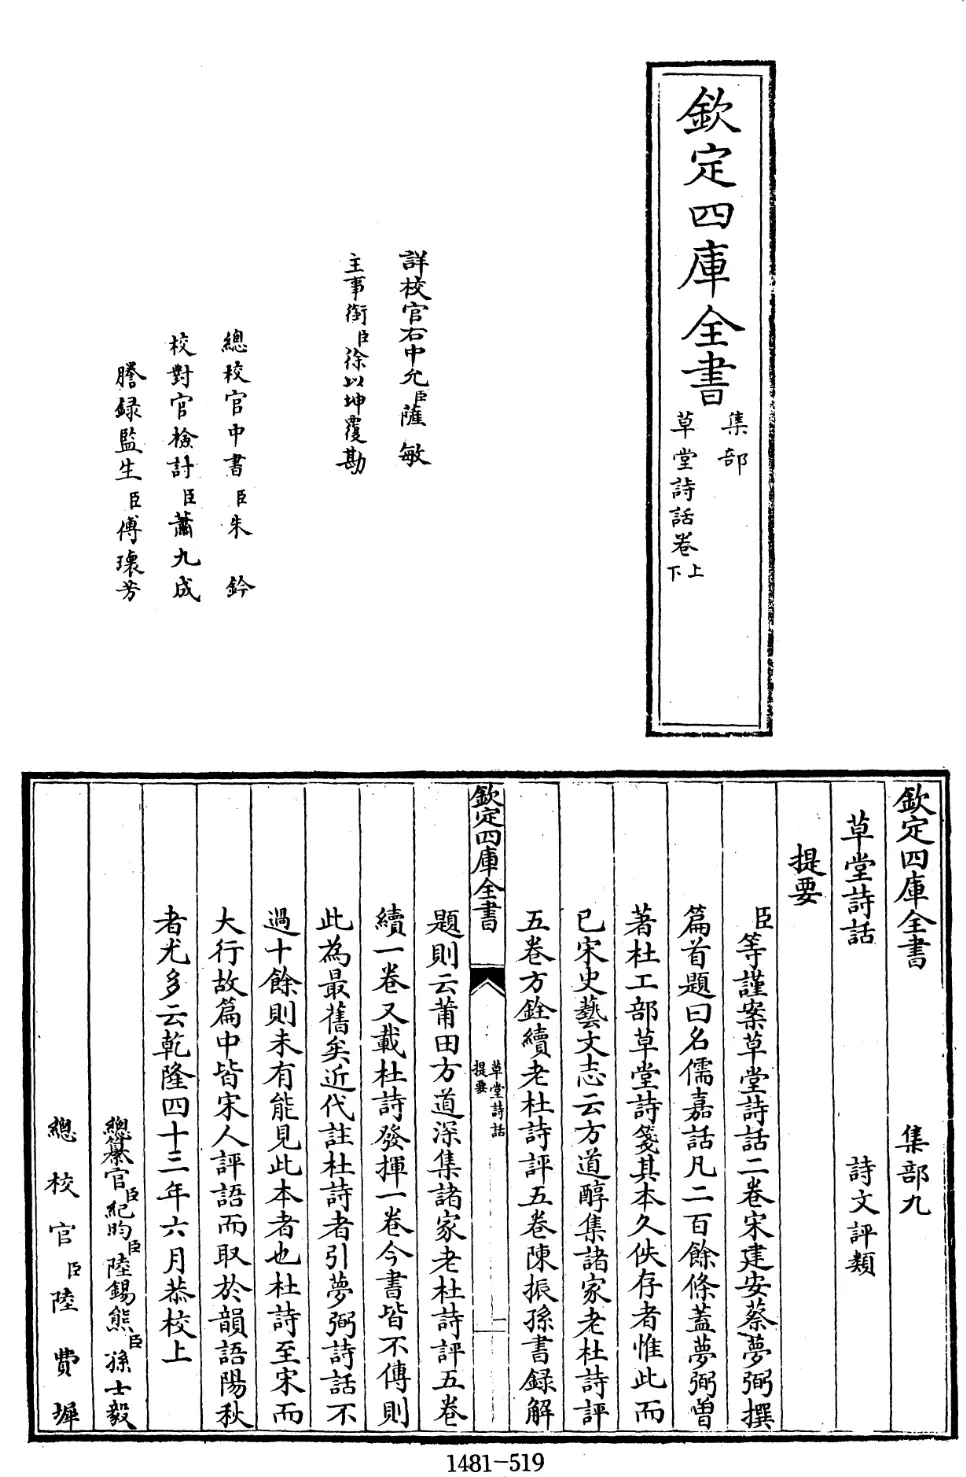 欽定四庫全書
集部
草堂詩話卷上下
詳校官右中允臣薩敏
主事銜臣徐以坤覆勘
總校官中書臣朱鈐
校對官檢討臣蕭九成
謄錄監生臣傅瓌芳
欽定四庫全書 集部九
草堂詩話 詩文評類
提要
臣等謹案草堂詩話二卷宋建安蔡夢弼撰
篇首題曰名儒嘉話凡二百餘條蓋夢弼曽
著杜工部草堂詩箋其本久佚存者惟此而
已宋史藝文志云方道醇集諸家老杜詩評
五卷方銓續老杜詩評五卷陳振孫書録解
欽定四庫全書
草堂詩話
提要
一
題則云莆田方道深集諸家老杜詩評五卷
續一卷又載杜詩發揮一卷今書皆不傳則
此為最舊矣近代註杜詩者引夢弼詩話不
過十餘則未有能見此本者也杜詩至宋而
大行故篇中皆宋人評語而取於韻語陽秋
者尤多云乾隆四十三年六月恭校上
總纂官臣紀昀臣陸錫熊臣孫士毅
總校官臣陸費墀
1481-519